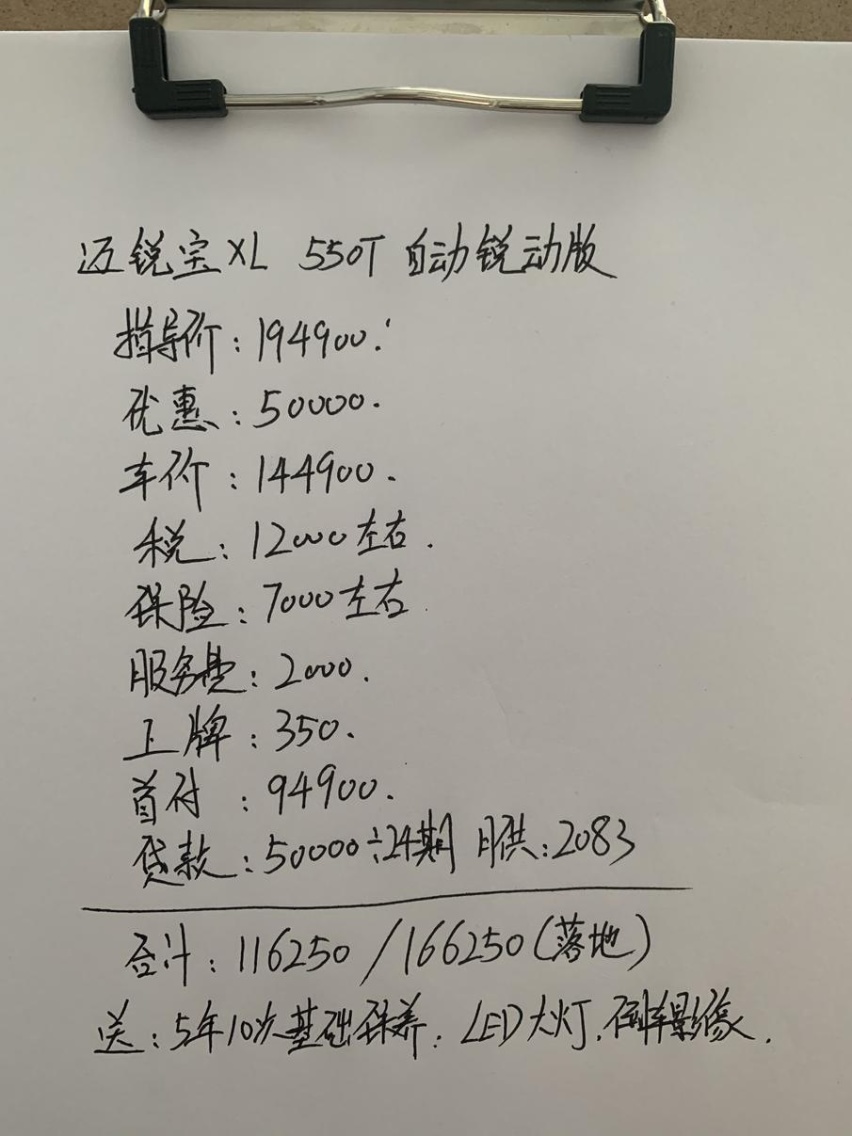 迈锐宝XL 550T 自动锐动版
指导价:194900.
优惠:50000.
车价:144900.
税:12000左右.
保险:7000左右
服务费:2000.
上牌:350.
首付:94900.
贷款:50000÷24期 月供:2083
合计:116250/166250(落地)
送:5年10次基础保养.LED大灯.倒车影像.